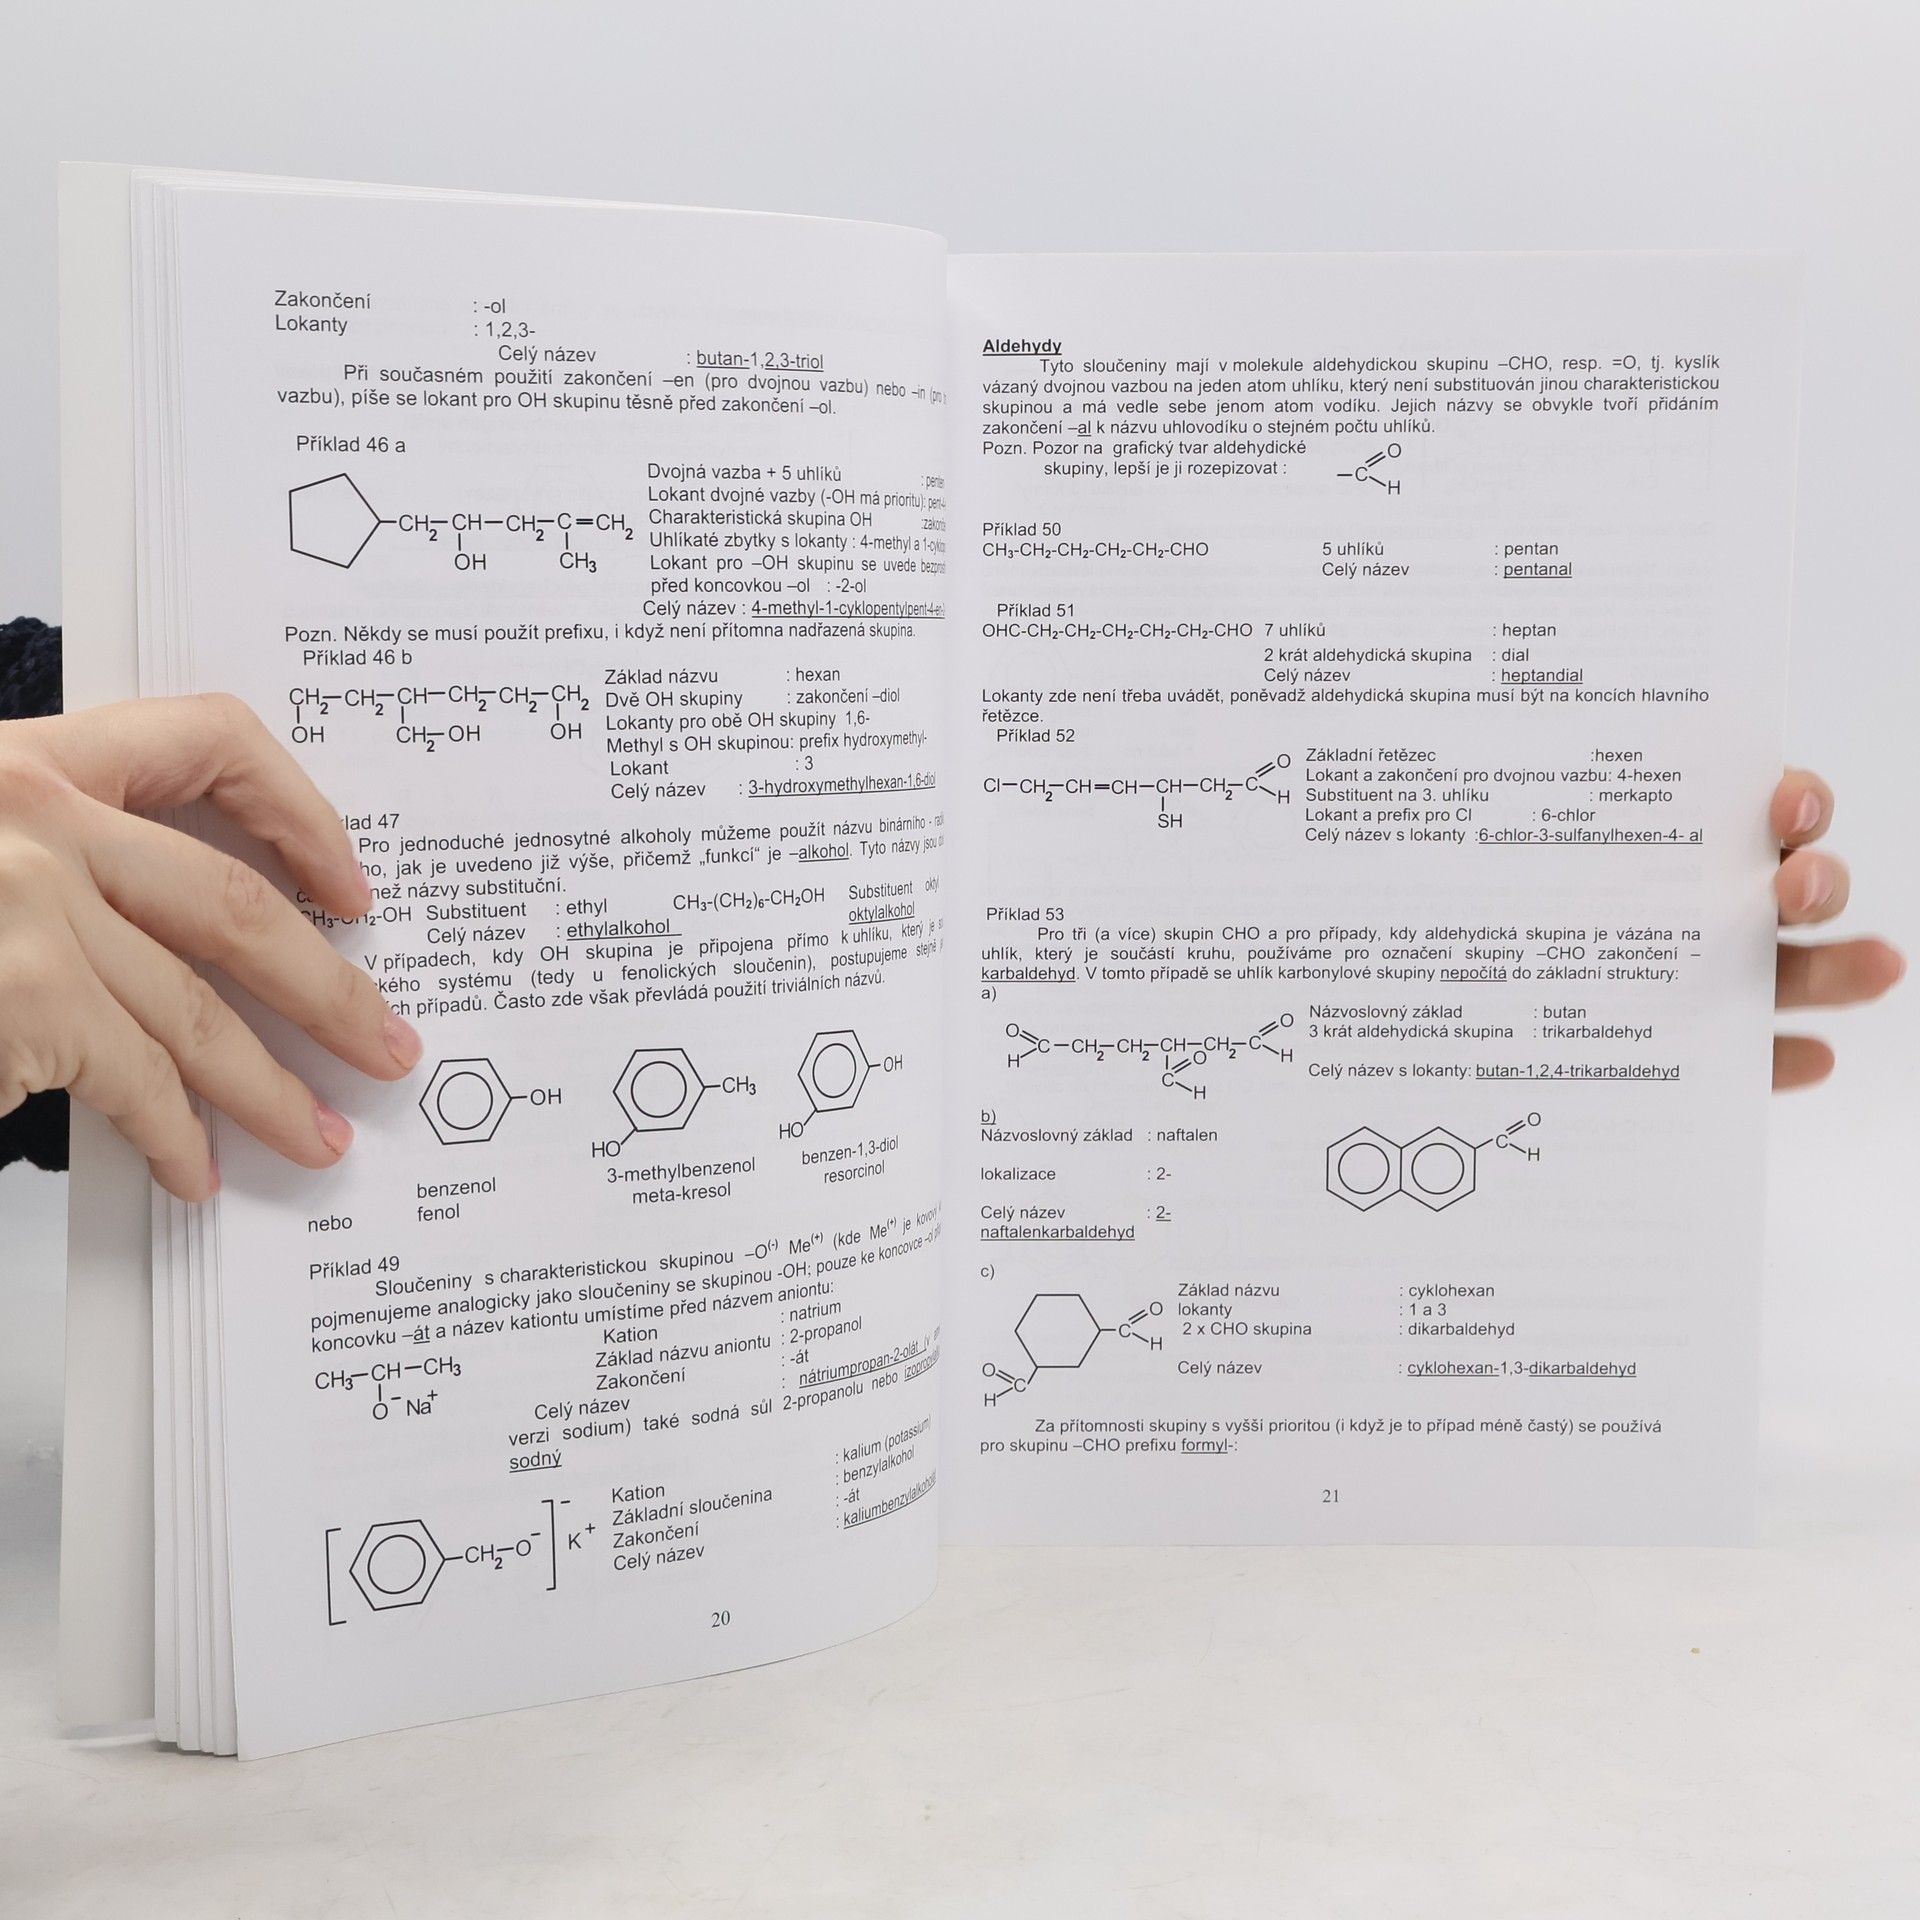 Zakončení : -ol
Lokanty : 1,2,3-
Celý název : butan-1,2,3-triol
Při současném použití zakončení –en (pro dvojnou vazbu) nebo –in (pro
vazbu), píše se lokant pro OH skupinu těsně před zakončení –ol.
Příklad 46 a
Dvojná vazba + 5 uhlíků
Lokant dvojné vazby (-OH má prioritu):
Charakteristická skupina OH
Uhlíkaté zbytky s lokanty : 4-methyl a
Lokant pro –OH skupinu se uvede
před koncovkou –ol : -2-ol
Celý název : 4-methyl-1-cyklopentylpent-4-en-
CH2–CH–CH2–C=CH2
OH CH3
Pozn. Někdy se musí použít prefixu, i když není přítomna nadřazená skupina.
Příklad 46 b
CH2–CH2–CH–CH2–CH2–CH2
OH CH2–OH OH
Základ názvu : hexan
Dvě OH skupiny : zakončení –diol
Lokanty pro obě OH skupiny 1,6-
Methyl s OH skupinou: prefix hydroxymethyl-
Lokant : 3
Celý název : 3-hydroxymethylhexan-1,6-diol
lad 47
Pro jednoduché jednosytné alkoholy můžeme použít názvu binárního -
ho, jak je uvedeno již výše, přičemž „funkcí“ je –alkohol. Tyto názvy jsou
než názvy substituční.
-OH Substituent : ethyl CH3-(CH2)6-CH2OH Substituent oktyl
Celý název : ethylalkohol oktylalkohol
V případech, kdy OH skupina je připojena přímo k uhlíku, který je
kého systému (tedy u fenolických sloučenin), postupujeme stejně
ch případů. Často zde však převládá použití triviálních názvů.
OH CH3 OH
HO HO
benzenol 3-methylbenzenol benzen-1,3-diol
nebo fenol meta-kresol resorcinol
Příklad 49
Sloučeniny s charakteristickou skupinou –O(-) Me(+) (kde Me(+) je kovový
pojmenujeme analogicky jako sloučeniny se skupinou -OH; pouze ke koncovce –ol
koncovku –át a název kationtu umístíme před názvem aniontu:
CH3–CH–CH3
O- Na+
Kation : natrium
Základ názvu aniontu : 2-propanol
Zakončení : -át
Celý název : nátriumpropan-2-olát (v
verzi sodium) také sodná sůl 2-propanolu nebo
sodný
CH2–O- - K+
Kation : kalium (potassium)
Základní sloučenina : benzylalkohol
Zakončení : -át
Celý název : kaliumbenzylalkoholát
20
Aldehydy
Tyto sloučeniny mají v molekule aldehydickou skupinu –CHO, resp. =O, tj. kyslík
vázaný dvojnou vazbou na jeden atom uhlíku, který není substituován jinou charakteristickou
skupinou a má vedle sebe jenom atom vodíku. Jejich názvy se obvykle tvoří přidáním
zakončení –al k názvu uhlovodíku o stejném počtu uhlíků.
Pozn. Pozor na grafický tvar aldehydické
skupiny, lepší je ji rozepizovat :
–C O H
Příklad 50
CH3-CH2-CH2-CH2-CH2-CHO 5 uhlíků : pentan
Celý název : pentanal
Příklad 51
OHC-CH2-CH2-CH2-CH2-CH2-CHO 7 uhlíků : heptan
2 krát aldehydická skupina : dial
Celý název : heptandial
Lokanty zde není třeba uvádět, poněvadž aldehydická skupina musí být na koncích hlavního
řetězce.
Příklad 52
Cl–CH2–CH=CH–CH–CH2–C O H
SH
Základní řetězec :hexen
Lokant a zakončení pro dvojnou vazbu: 4-hexen
Substituent na 3. uhlíku : merkapto
Lokant a prefix pro Cl : 6-chlor
Celý název s lokanty :6-chlor-3-sulfanylhexen-4- al
Příklad 53
Pro tři (a více) skupin CHO a pro případy, kdy aldehydická skupina je vázána na
uhlík, který je součástí kruhu, používáme pro označení skupiny –CHO zakončení –
karbaldehyd. V tomto případě se uhlík karbonylové skupiny nepočítá do základní struktury:
a)
O H C–CH2–CH2–CH–CH2–C O H
C O H
Názvoslovný základ : butan
3 krát aldehydická skupina : trikarbaldehyd
Celý název s lokanty: butan-1,2,4-trikarbaldehyd
b)
Názvoslovný základ : naftalen
C O H
lokalizace : 2-
Celý název : 2-
naftalenkarbaldehyd
c)
C O H
O H C
Základ názvu : cyklohexan
lokanty : 1 a 3
2 x CHO skupina : dikarbaldehyd
Celý název : cyklohexan-1,3-dikarbaldehyd
Za přítomnosti skupiny s vyšší prioritou (i když je to případ méně častý) se používá
pro skupinu –CHO prefixu formyl-:
21